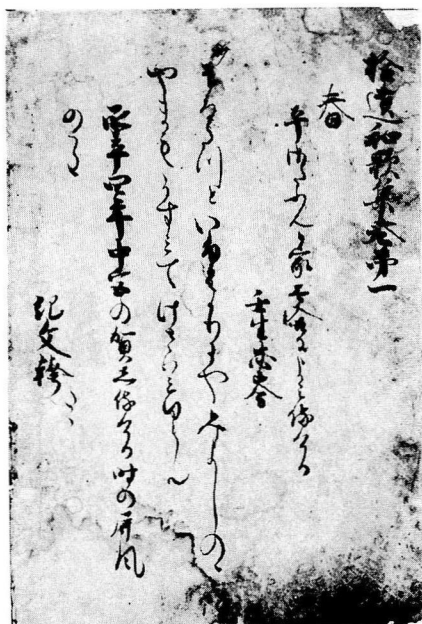 拾遺和歌集巻第一
春
平さたふんか家哥合によみ侍ける
壬生忠岑
はるたつといふはかりにやみよしのゝ
やまもかすみてけさはみゆらん
承平四年中宮の賀し侍ける時の屏風
のうた
紀文幹